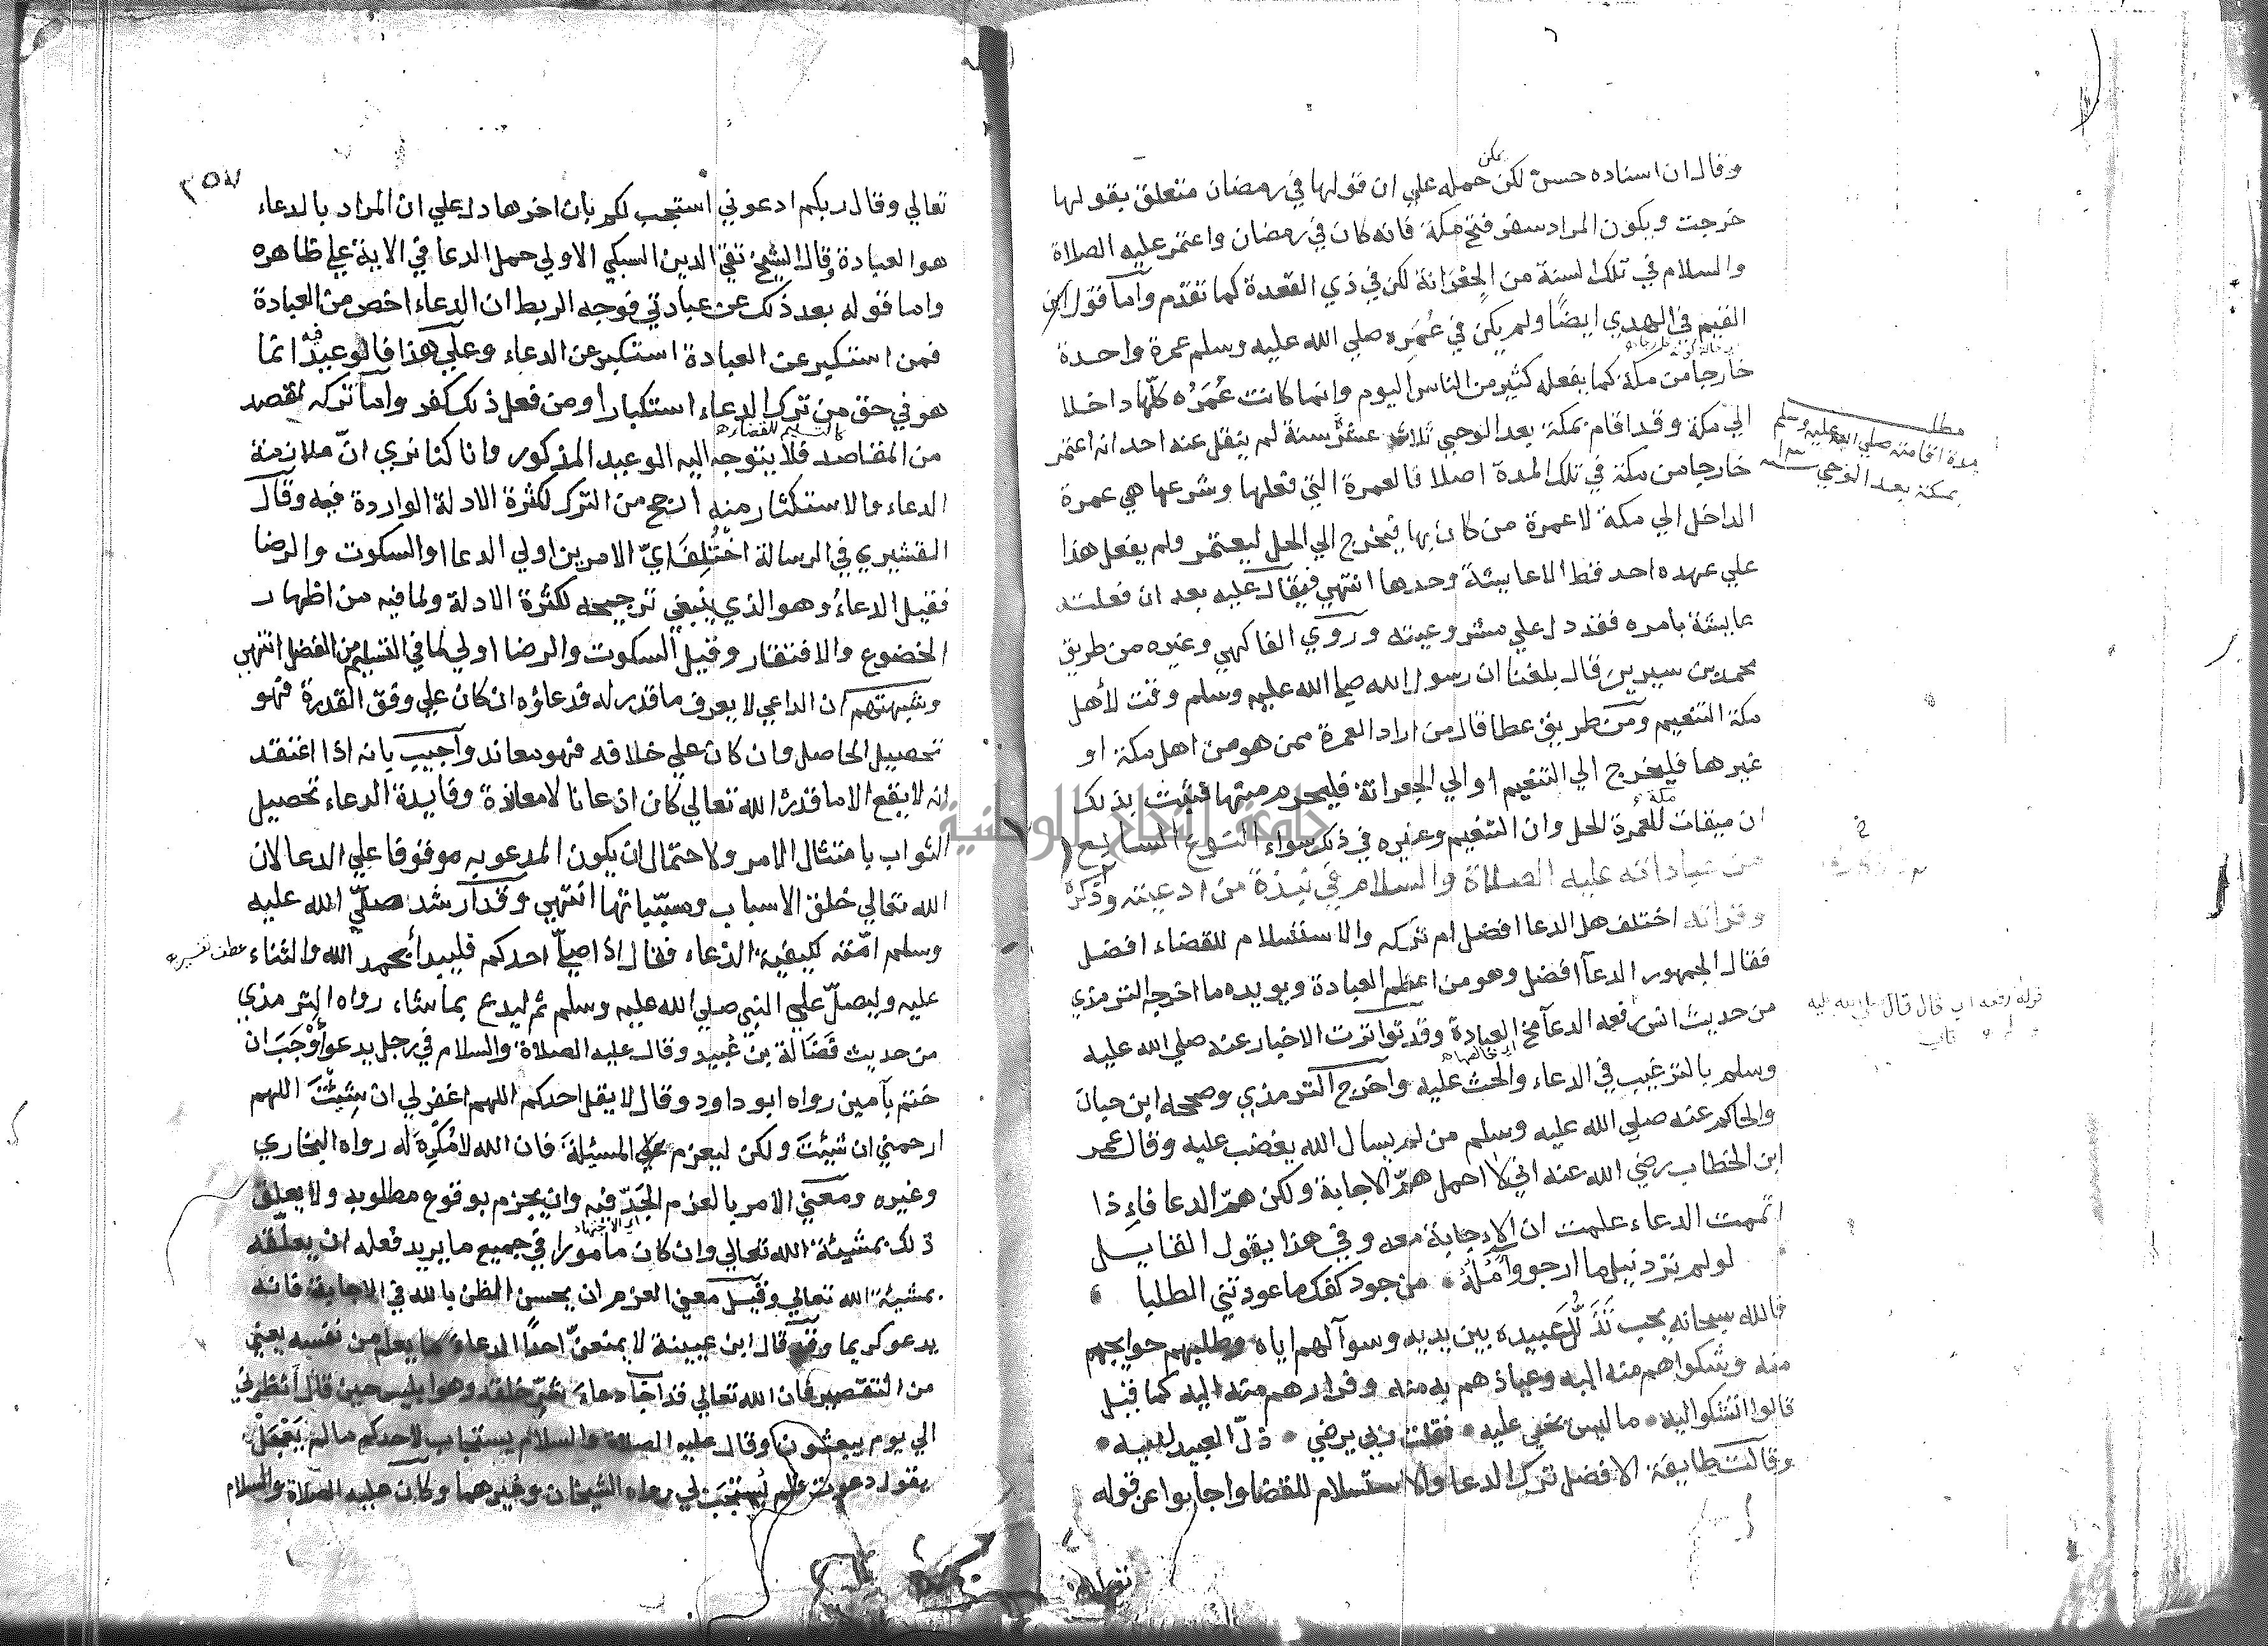 وقال ان اسناده حسن لكن يمكن حمله علي ان قولها في رمضان متعلق بقولها
خرجت ويكون المراد سفر فتح مكة فانه كان في رمضان واعتمر عليه الصلاة
والسلام في تلك السنة من الجعرانة لكن في ذي القعدة كما تقدم واما قول ابن
القيم في الهدي ايضا ولم يكن في عُمَره صلي الله عليه وسلم عمرة واحدة
خارجا من مكة كما يفعله كثير من الناس اليوم وانما كانت عُمَرُه كلّها داخلا
الي مكة وقد اقام بمكة بعد الوحي ثلاث عشرة سنة لم ينقل عنه احد انه اعتمر
خارجا من مكة في تلك المدة اصلا فالعمرة التي فعلها وشرعها هي عمرة
الداخل الي مكة لا عمرة من كان بها فيخرج الي الحل ليعتمر ولم يفعل هذا
علي عهده احد قط الا عايشة وحدها انتهي فيقال عليه بعد ان فعلته
عايشة بامره فقد دل علي مشروعيته وروي الفاكهي وغيره من طريق
محمد بن سيرين قال بلغنا ان رسول الله صلي الله عليه وسلم وقت لأهل
مكة التنعيم ومن طريق عطا قال من اراد العمرة ممن هو من اهل مكة او
غيرها فليخرج الي التنعيم او الي الجعرانة فليحرم منها فثبت بذلك
ان ميقات مكة للعمرة الحل وان التنعيم وغيره في ذلك سواء النوع السابع
من عباداته عليه الصلاة والسلام في نبذة من ادعيته وذكره
وقراته اختلف هل الدعا افضل ام تركه والاستسلام للقضاء افضل
فقال الجمهور الدعا افضل وهو من اعظم العبادة ويويده ما اخرجه الترمذي
من حديث انس رفعه الدعا مخ العبادة وقد تواترت الاخبار عنه صلي الله عليه
وسلم بالترغيب في الدعاء والحث عليه واخرج الترمذي وصححه ابن حبان
والحاكم عنه صلي الله عليه وسلم من لم يسال الله يغضب عليه وقال عمر
ابن الخطاب رضي الله عنه اني لا احمل همّ الاجابة ولكن همّ الدعا فاِذا
اتممت الدعاء علمت ان الاِجابة معه وفي هذا يقول القايل
لو لم ترد نيل ما ارجو وآمُلُهُ • من جود كفك ما عودتني الطلبا •
فالله سبحانه يحب تَذَلُّلَ عبيده بين يديه وسوآلهم اياه وطلبهم حوايجهم
منه وشكواهم منه اليه وعياذهم به منه وفرارهم منه اليه كما قيل
قالوا اتشكو اليه • ما ليس يخفي عليه • فقلت ربي يرضي • ذلّ العبيد لديه •
وقالت طايفة الافضل ترك الدعا والاستسلام للقضا واجابوا عن قوله
مطلب
مدة اقامته صلي الله عليه وسلم
بمكة بعد الوحي
قوله رفعه اي قال قال صلي الله عليه
٢٥٧
تعالي وقال ربكم ادعوني أستجب لكم بان اخرها دل علي ان المراد بالدعاء
هو العبادة وقال الشيخ تقي الدين السبكي الاولي حمل الدعا في الاية علي ظاهره
واما قوله بعد ذلك عن عبادتي فوجه الربط ان الدعاء اخص من العبادة
فمن استكبر عن العبادة استكبر عن الدعاء وعلي هذا فالوعيد فيه انما
هو في حق من ترك الدعاء استكبارا ومن فعل ذلك كفر واما تركه لمقصد
من المقاصد كالتسليم للقضاء فلا يتوجه اليه الوعيد المذكور وانا كنا نري انّ ملازمة
الدعاء والاستكثار منه أرجح من الترك لكثرة الادلة الواردة فيه وقال
القشيري في الرسالة اختُلِفَ ايّ الامرين اولي الدعا او السكوت والرضا
فقيل الدعاءُ وهو الذي ينبغي ترجيحه لكثرة الادلة ولما فيه من اظهار
الخضوع والافتقار وقيل السكوت والرضا اولي لما في التسليم من الفضل انتهي
وشبهتهم ان الداعي لا يعرف ما قدر له فدعاؤه ان كان علي وفق القدرة فهو
تحصيل الحاصل وان كان علي خلافه فهو معاند واجيب بانه اذا اعتقد
انه لا يقع الا ما قدره الله تعالي كان اذعانا لا معاندة وفايدة الدعاء تحصيل
الثواب بامتثال الامر ولاحتمال ان يكون المدعو به موقوفا علي الدعا لان
الله تعالي خلق الاسباب ومسبّباتها انتهي وقد ارشد صلّي الله عليه
وسلم امّته لكيفية الدعاء فقال اذا صلّي احدكم فليبدأ بحمد الله والثناء
عليه وليصلّ علي النبي صلي الله عليه وسلم ثم ليدع بما شاء رواه الترمذي
من حديث فَضَالة بن عُبيد وقال عليه الصلاة والسلام في رجل يدعو أوْجَبَ ان
ختم بآمين رواه ابو داود وقال لا يقل احدكم اللهم اغفر لي ان شِئتَ اللهم
ارحمني ان شِئتَ ولكن ليعزم علي المسئلة فان الله لا مُكْرِهَ له رواه البخاري
وغيره ومعني الامر بالعزم الجَدّ فيه وان يجزم بوقوع مطلوبه ولا يعلق
ذلك بمشيئة الله تعالي وان كان مامورا في جميع ما يريد فعله ان يعلّقه
بمشيئة الله تعالي وقيل معني العزم ان يحسن الظن بالله في الاجابة فانه
يدعو كريما وقد قال ابن عيينة لا يمنعنّ احدًا الدعاءَ ما يعلم من نفسه يعني
من التقصير فان الله تعالي قد اجاب دعاءَ شرّ خلقه وهو ابليس حين قال أنظرني
الي يوم يبعثون وقال عليه الصلاة والسلام يستجاب لاحدكم ما لم يَعْجَلْ
يقول دعوت فلم يُستَجَبْ لي رواه الشيخان وغيرهما وكان عليه الصلاة والسلام
عطف تفسير
جامعة النجاح الوطنية